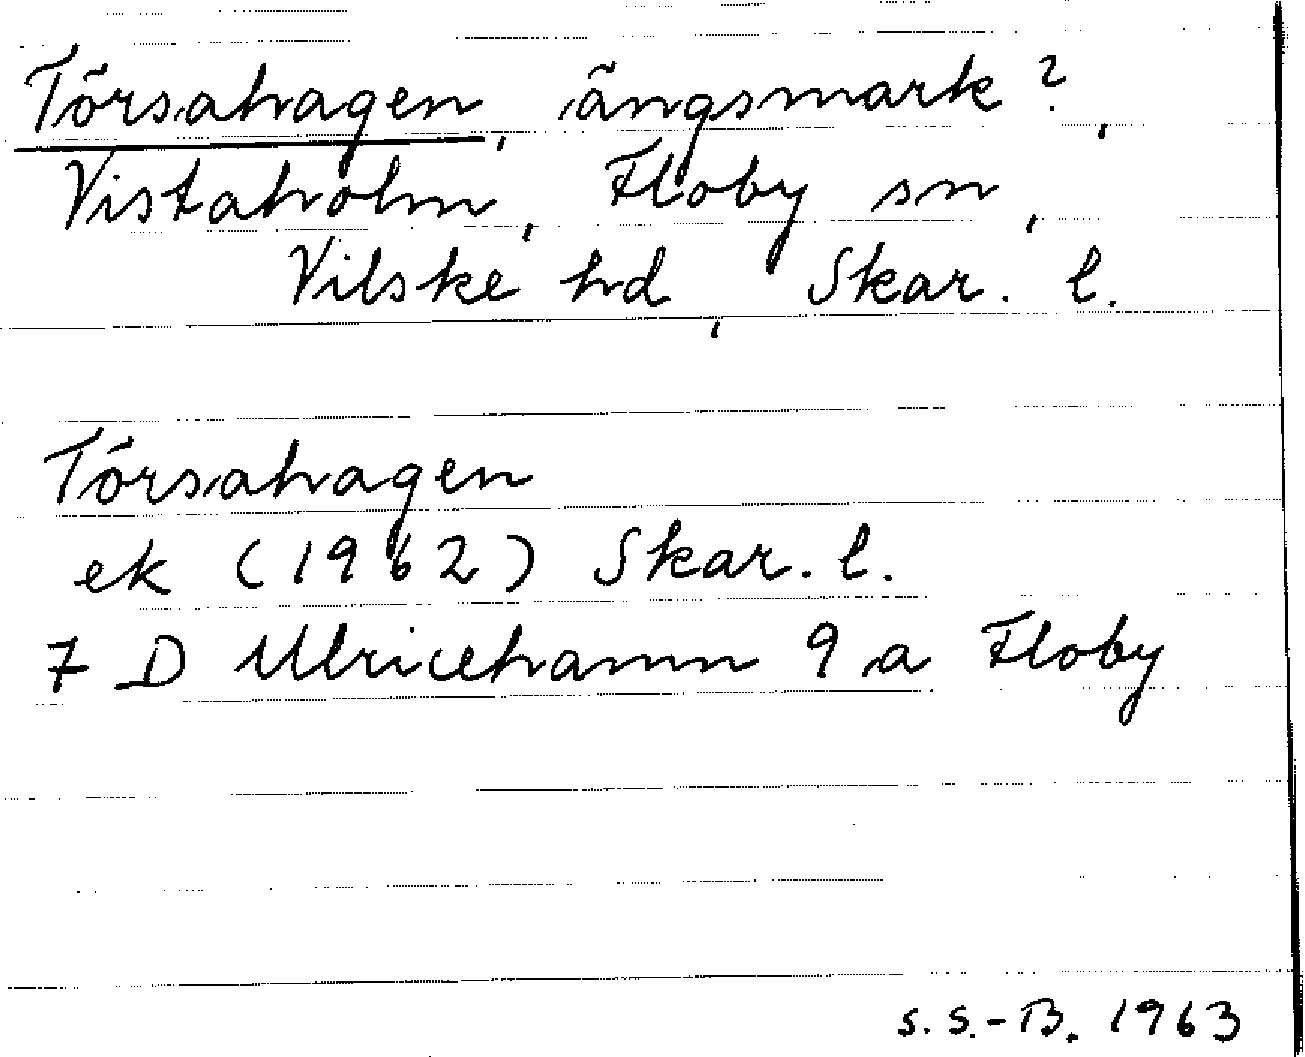 Törsahagen, ängsmark?,
Vistaholm, Floby sn,
Vilske hd, Skar. l.
Törsahagen
ek (1962) Skar. l.
7 D Ulricehamn 9 a Floby
S. S.-B. 1963